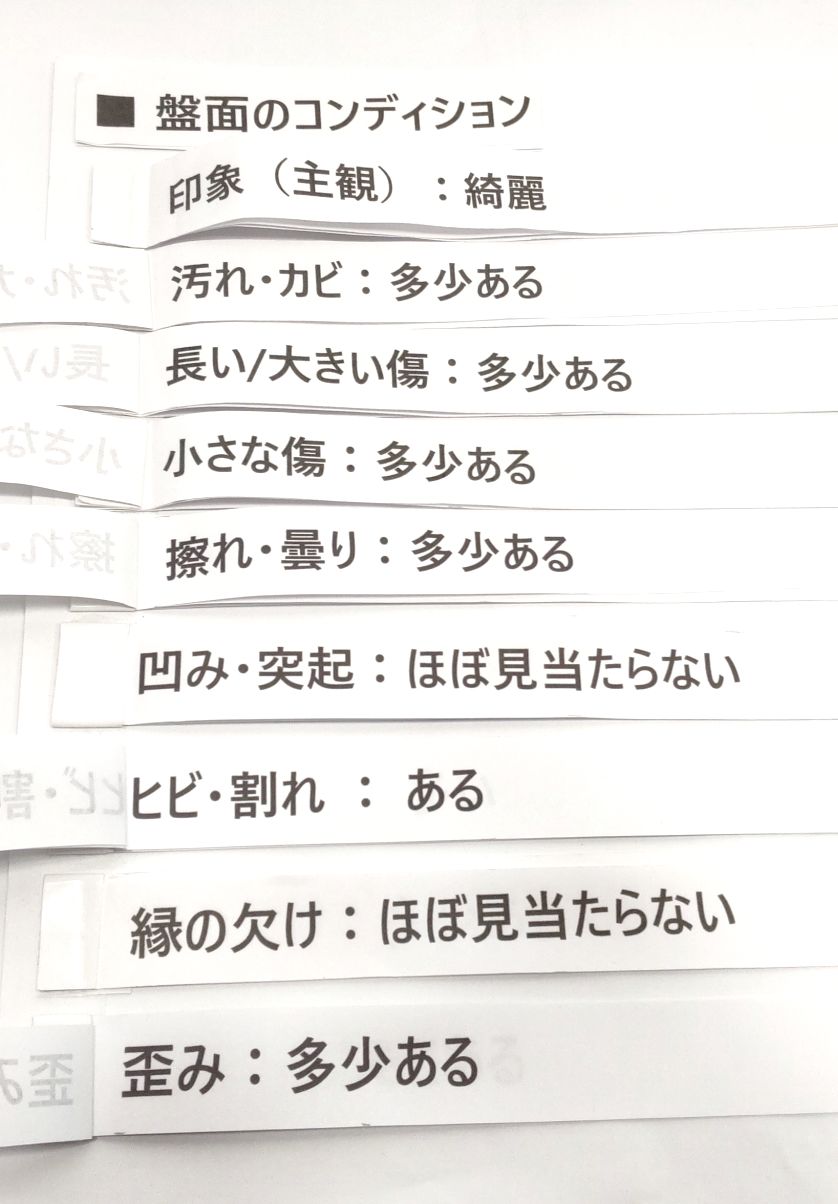 ■ 盤面のコンディション
印象（主観）：綺麗
汚れ・カビ：多少ある
長い/大きい傷：多少ある
小さな傷：多少ある
擦れ・曇り：多少ある
凹み・突起：ほぼ見当たらない
ヒビ・割れ ： ある
縁の欠け：ほぼ見当たらない
歪み：多少ある